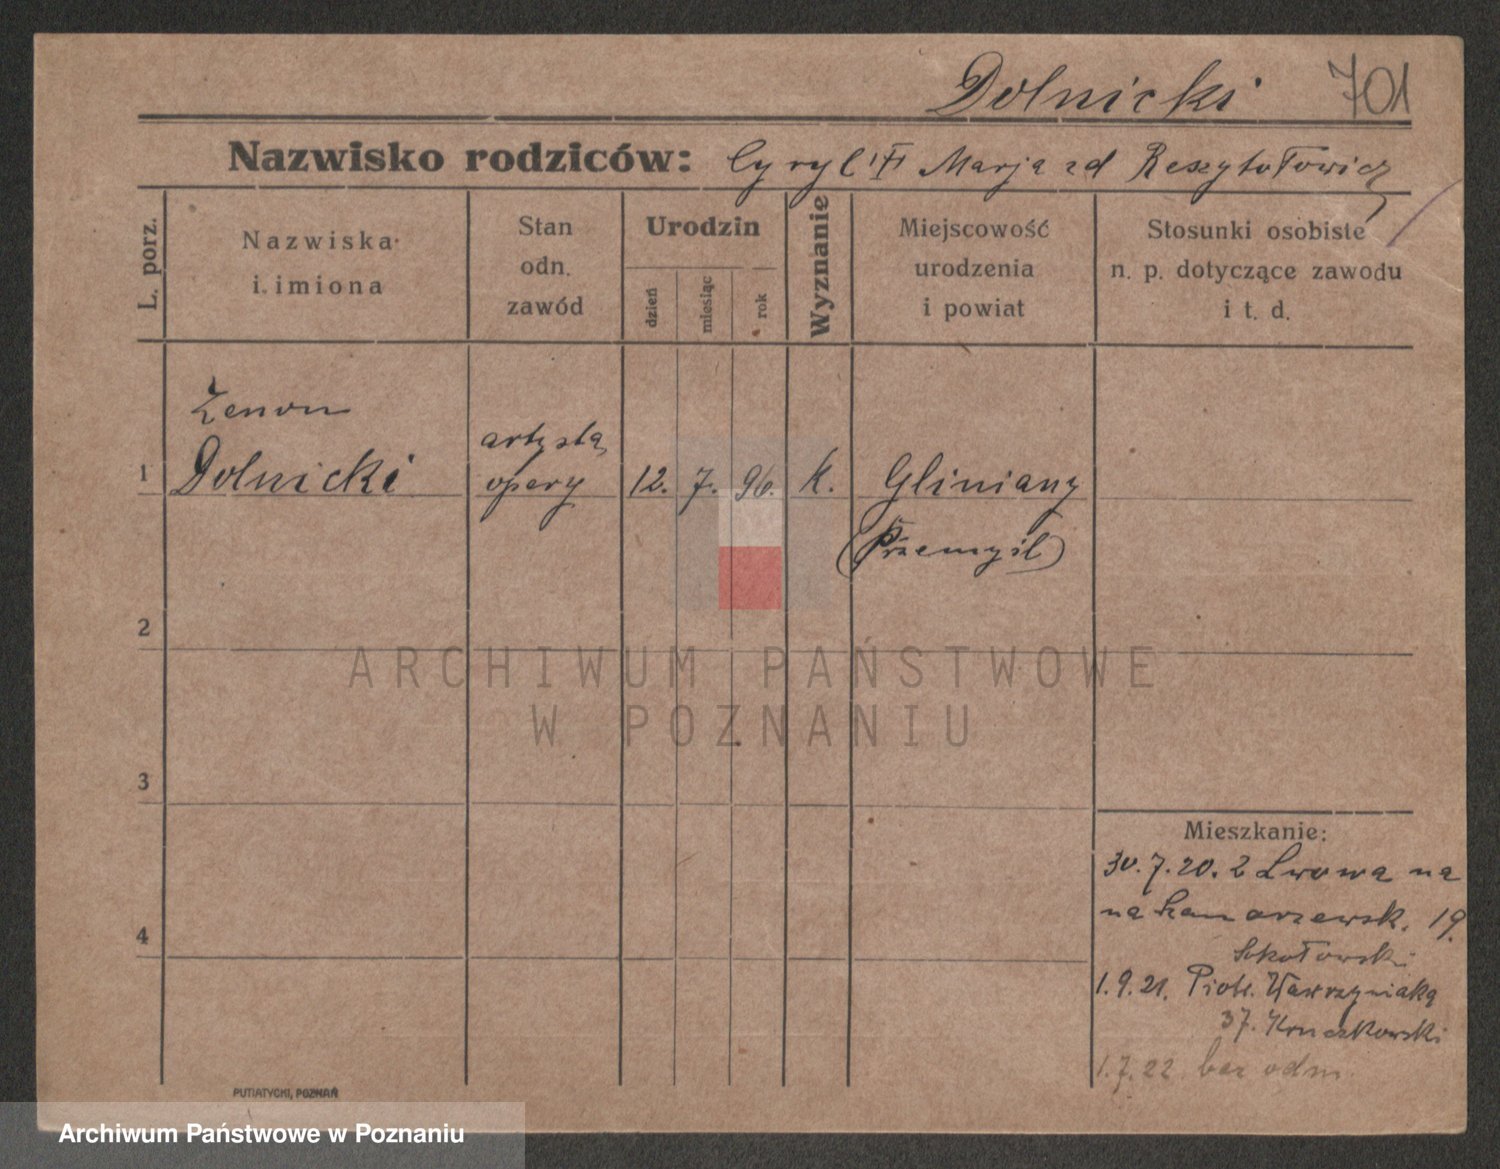 Dolnicki 701
Nazwisko rodziców: Cyryl i Marja zd Reszytołowicz
L. porz.
Nazwiska
i imiona
Stan
odn.
zawód
Urodzin
dzień
miesiąc
rok
Wyznanie
Miejscowość
urodzenia
i powiat
Stosunki osobiste
n. p. dotyczące zawodu
i t. d.
Zenon
1 Dolnicki
artysta
opery
12. 7. 96. k. Gliniany
(Przemyśl)
2
ARCHIWUM PAŃSTWOWE
W POZNANIU
3
Mieszkanie:
30.7.20. z Lwowa na
na 19.
Sokołowski
4
1.9.21. Piotr. Wawrzyniaka
37. Kruczkowski
1.7.22 bez odm.
PUTIATYCKI, POZNAŃ
Archiwum Państwowe w Poznaniu